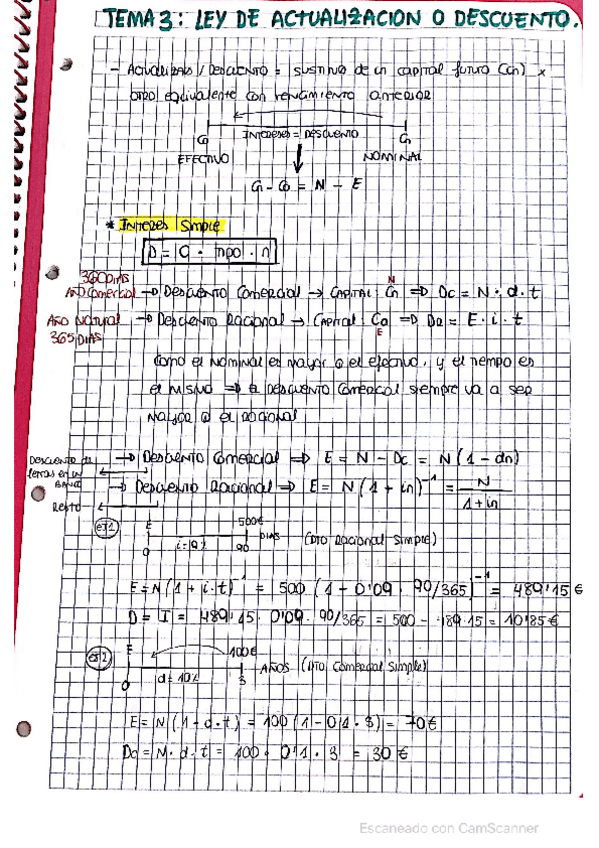 TEMA 3: LEY DE ACTUALIZACION O DESCUENTO.
- Actualizar / Descuento = sustituir de un capital futuro (Cn) x
otro equivalente con vencimiento anterior
Intereses = Descuento
Co Cn
EFECTIVO NOMINAL
Cn - Co = N - E
* Interes Simple
D = C · tipo · n
360 DIAS N
Año Comercial → Descuento Comercial → Capital: Cn ⇒ Dc = N · d · t
Año Natural → Descuento Racional → Capital: Co ⇒ DR = E · i · t
365 DIAS E
Como el nominal es mayor q el efectivo, y el tiempo es
el mismo ⇒ el Descuento Comercial siempre va a ser
mayor q el racional
Descuento de letras en un banco → Descuento Comercial ⇒ E = N - Dc = N (1 - dn)
Resto → Descuento Racional ⇒ E = N (1 + in)⁻¹ = N / 1 + in
ej1 E 500€
0 90 DIAS (Dto Racional Simple)
E = N (1 + i·t)⁻¹ = 500 (1 + 0'09 · 90/365)⁻¹ = 489'15 €
D = I = 489'15 · 0'09 · 90/365 = 500 - 489'15 = 10'85 €
ej2 E 100€
0 d = 10% 3 AÑOS (Dto Comercial Simple)
E = N (1 - d·t) = 100 (1 - 0'1 · 3) = 70 €
Dc = N · d · t = 100 · 0'1 · 3 = 30 €
Escaneado con CamScanner